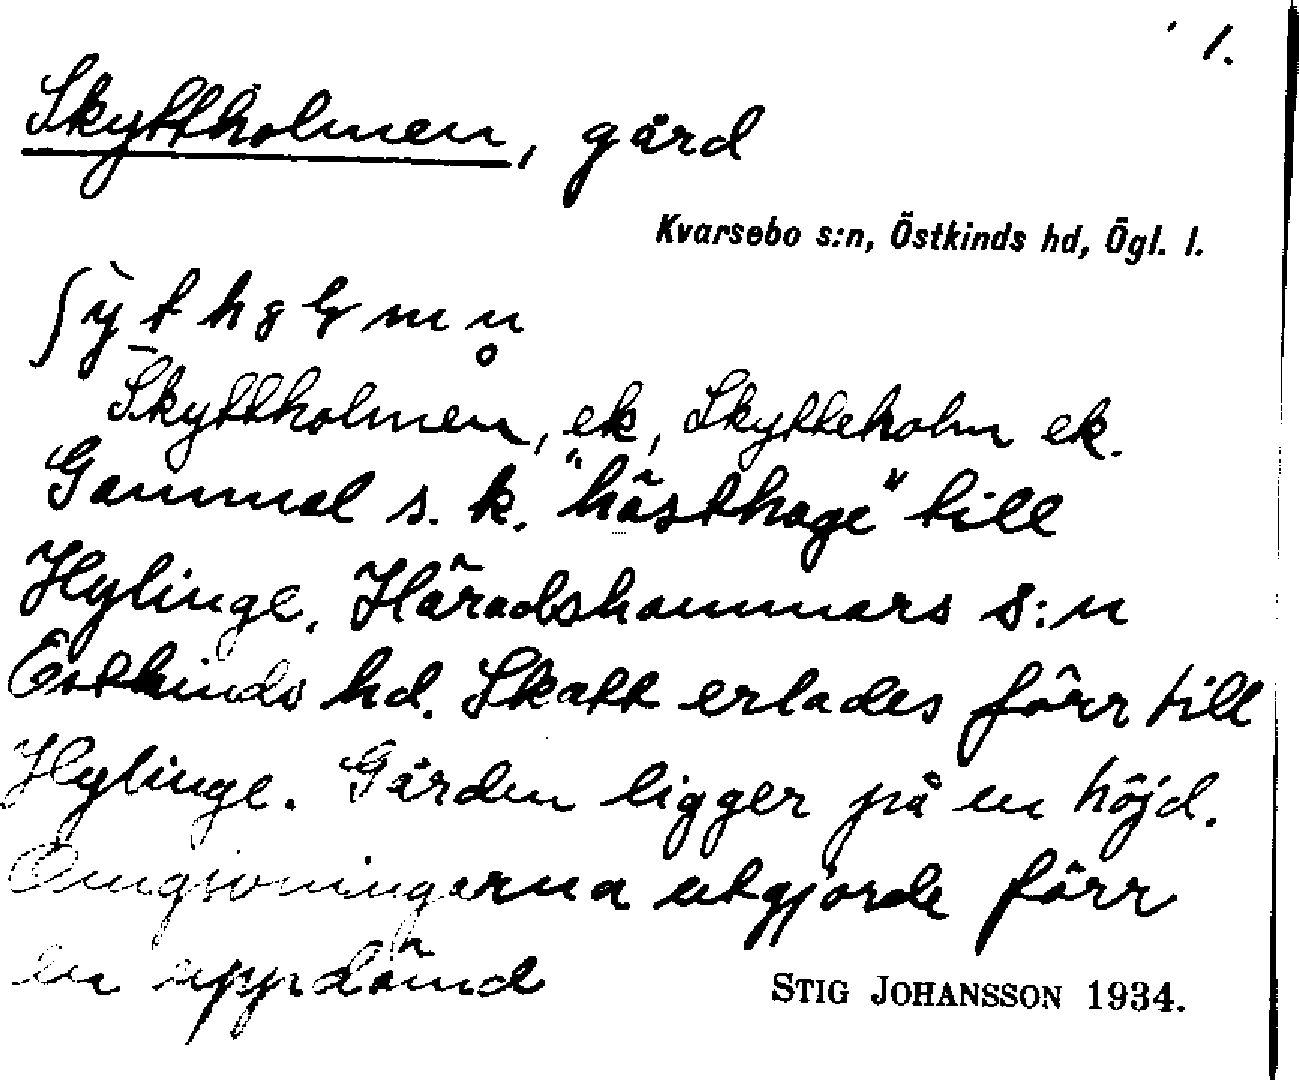 1.
Skyttholmen, gård
Kvarsebo s:n, Östkinds hd, Ögl. l.
Skyttholmen, ek, Skytteholm ek.
Gammal s. k. "hästhage" till
Hylinge, Häradshammars s:n
Östkinds hd. Skatt erlades förr till
Hylinge. Gården ligger på en höjd.
Omgivningarna utgjorde förr
en uppdämd
STIG JOHANSSON 1934.